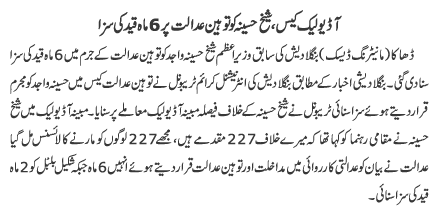 آڈیو لیک کیس، شیخ حسینہ کو توہین عدالت پر 6 ماہ قید کی سزا
ڈھاکا (مانیٹرنگ ڈیسک) بنگلا دیش کی سابق وزیراعظم شیخ حسینہ واجد کو توہین عدالت کے جرم میں 6 ماہ کی سزا
سنا دی گئی۔ بنگلا دیشی اخبار کے مطابق بنگلا دیش کی انٹرنیشنل کرائم ٹریبونل نے توہین عدالت کیس میں حسینہ واجد کو مجرم
قرار دیتے ہوئے سزا سنائی ٹریبونل نے شیخ حسینہ کے خلاف فیصلہ مبینہ آڈیو لیک معاملے پر سنایا۔ مبینہ آڈیو لیک میں شیخ
حسینہ نے مقامی رہنما کو کہا تھا کہ میرے خلاف 227 مقدمے ہیں، مجھے 227 لوگوں کو مارنے کا لائسنس مل گیا
عدالت نے بیان کو عدالتی کارروائی میں مداخلت اور توہین عدالت قرار دیتے ہوئے انہیں 6 ماہ جبکہ شکیل بلبل کو 2 ماہ
قید کی سزا سنائی۔